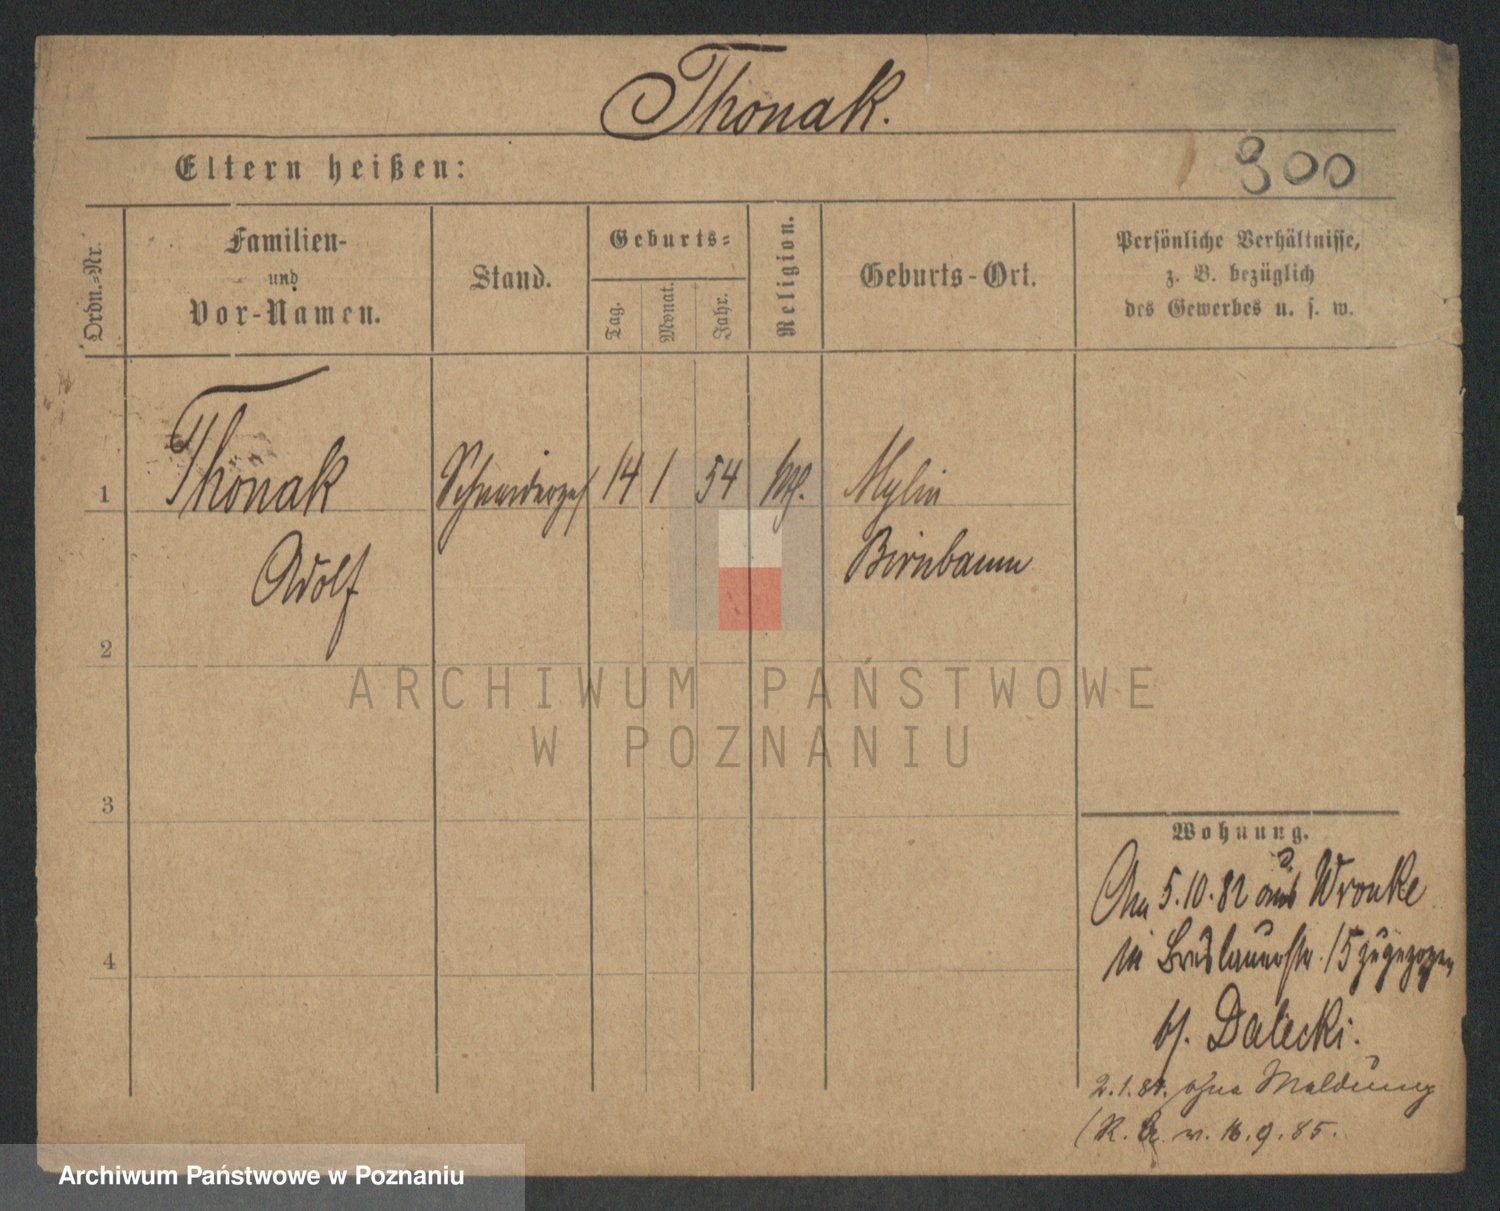 Thonak.
Eltern heißen:
900
Ordn.-Nr.
Familien-
und
Vor-Namen.
Stand.
Geburts-
Tag.
Monat.
Jahr.
Religion.
Geburts-Ort.
Persönliche Verhältnisse,
z. B. bezüglich
des Gewerbes u. s. w.
1
Thonak Schneiderges 14 1 54 Mylin
Adolf Birnbaum
2
3
4
ARCHIWUM PAŃSTWOWE
W POZNANIU
Wohnung.
Am 5.10.82 aus Wronke
in Breslauerstr. 15 zugezogen
bf. Dalecki.
2.1.84. ohne Meldung
(K. v. 16.9.85.
Archiwum Państwowe w Poznaniu